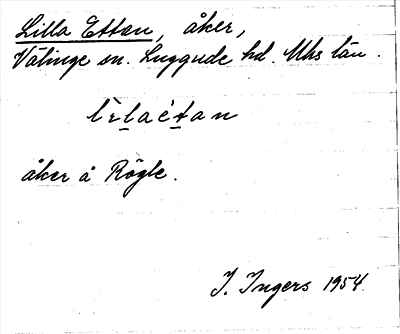 Lilla Ettan, åker,
Välinge sn. Luggude hd. Mhs län.
lìlaétan
åker å Rögle.
I. Ingers 1954